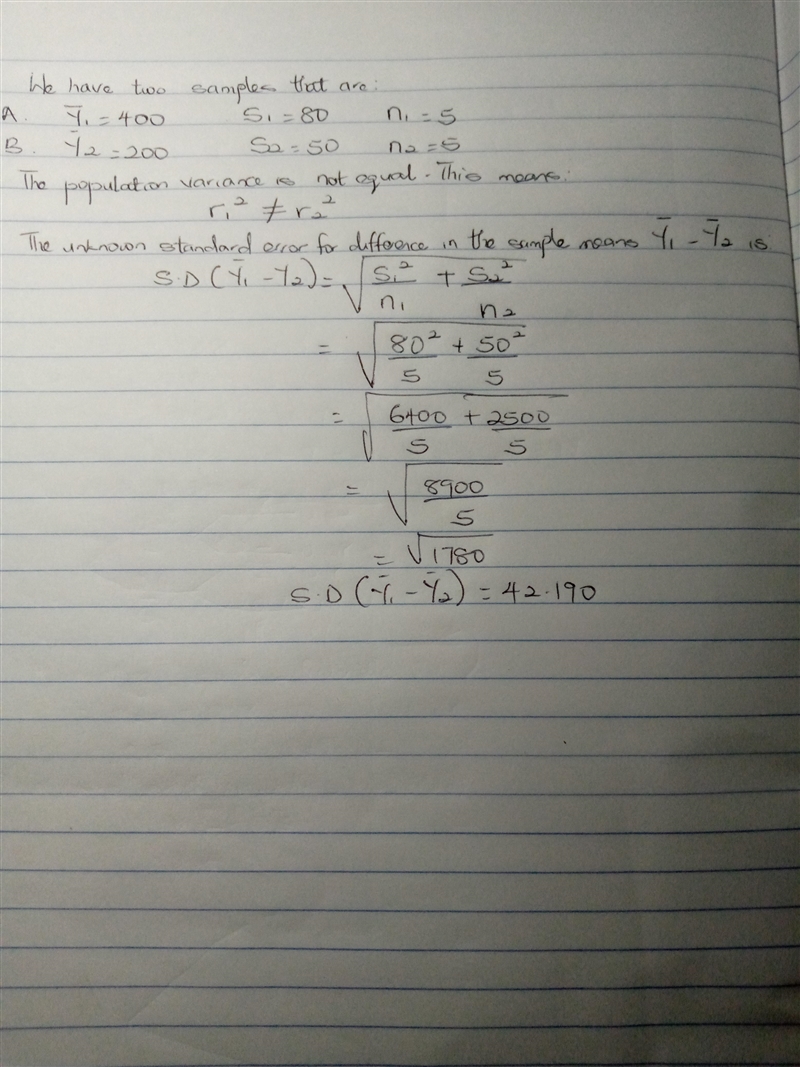 We have two samples that are:
A. Ȳ₁ = 400 S₁ = 80 n₁ = 5
B. Ȳ₂ = 200 S₂ = 50 n₂ = 5
The population variance is not equal. This means:
r₁² ≠ r₂²
The unknown standard error for difference in the sample means Ȳ₁ - Ȳ₂ is
S.D (Ȳ₁ - Y₂) = √(S₁²/n₁ + S₂²/n₂)
= √(80²/5 + 50²/5)
= √(6400/5 + 2500/5)
= √(8900/5)
= √1780
S.D (Ȳ₁ - Ȳ₂) = 42.190